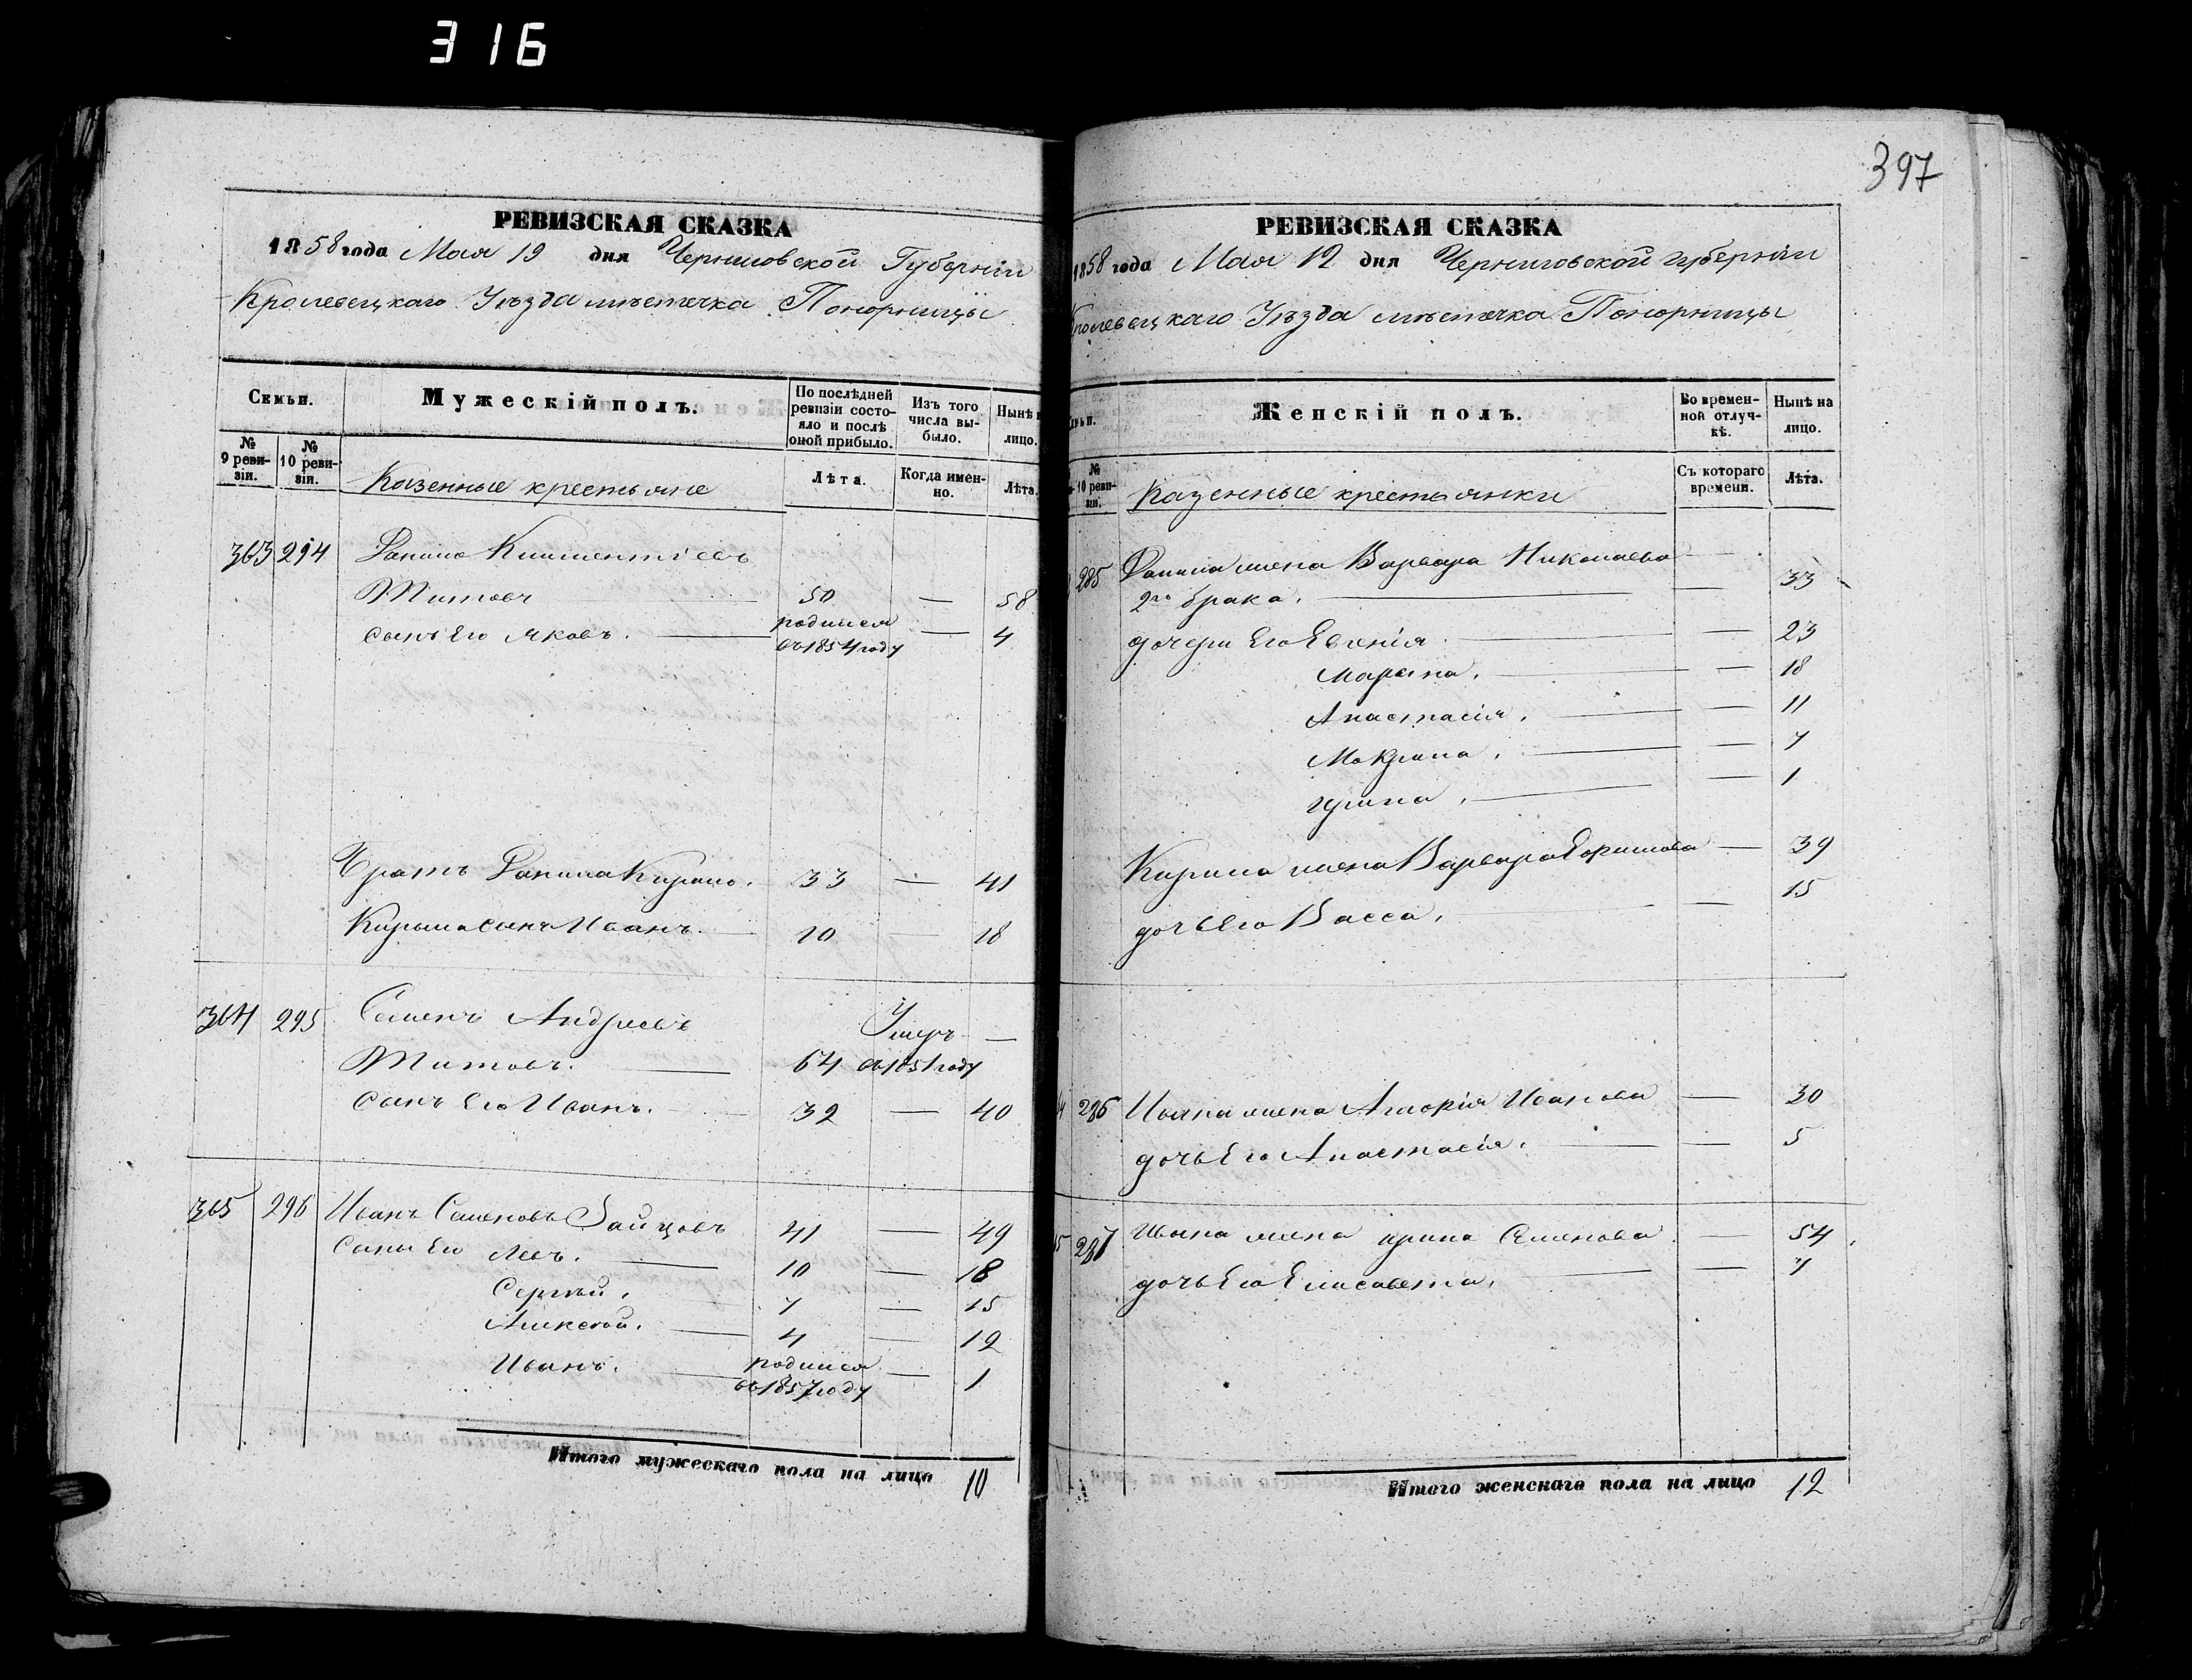 316
397
РЕВИЗСКАЯ СКАЗКА
1858 года Мая 19 дня Черниговской Губерніи
Кролевецкаго Уѣзда мѣстечка Понорницы
Семьи.
Мужескій полъ.
По послѣдней ревизіи состояло и послѣ оной прибыло.
Изъ того числа выбыло.
Нынѣ на лицо.
№ 9 ревизіи.
№ 10 ревизіи.
Казенные крестьяне
Лѣта.
Когда именно.
Лѣта.
363 294 Данило Климентіевъ
Титовъ — 50 — 58
сынъ Его Яковъ. — родился въ 1854 году — 4
Братъ Данила Кирило. 33 — 41
Кирила сынъ Иванъ. — 10 — 18
364 295 Семенъ Андреевъ
Титовъ. — 64 Умеръ въ 1851 году —
Сынъ Его Иванъ. — 32 — 40
365 296 Иванъ Семеновъ Зайцовъ 41 — 49
Сыны Его Левъ. — 10 — 18
Сергѣй. — 7 — 15
Алексѣй. — 4 — 12
Иванъ. — родился въ 1857 году — 1
Итого мужескаго пола на лицо 10
РЕВИЗСКАЯ СКАЗКА
1858 года Мая 12 дня Черниговской губерніи
Кролевецкаго Уѣзда мѣстечка Понорницы
Женскій полъ.
Во временной отлучкѣ.
Нынѣ на лицо.
№ 10 ревизіи.
Казенные крестьянки
Съ котораго времени.
Лѣта.
285 Данила жена Варвара Николаева —
2го брака. — — 33
дочери Его Евгенія — — 23
Марина. — — 18
Анастасія. — — 11
Макрина. — — 7
Ирина. — — 1
Кирила жена Варвара Ефимова — 39
дочь Его Васса. — — 15
286 Ивана жена Гликерія Иванова — 30
дочь Его Анастасія. — — 5
287 Ивана жена Ирина Семенова — 54
дочь Его Елисавета. — — 7
Итого женскаго пола на лицо 12